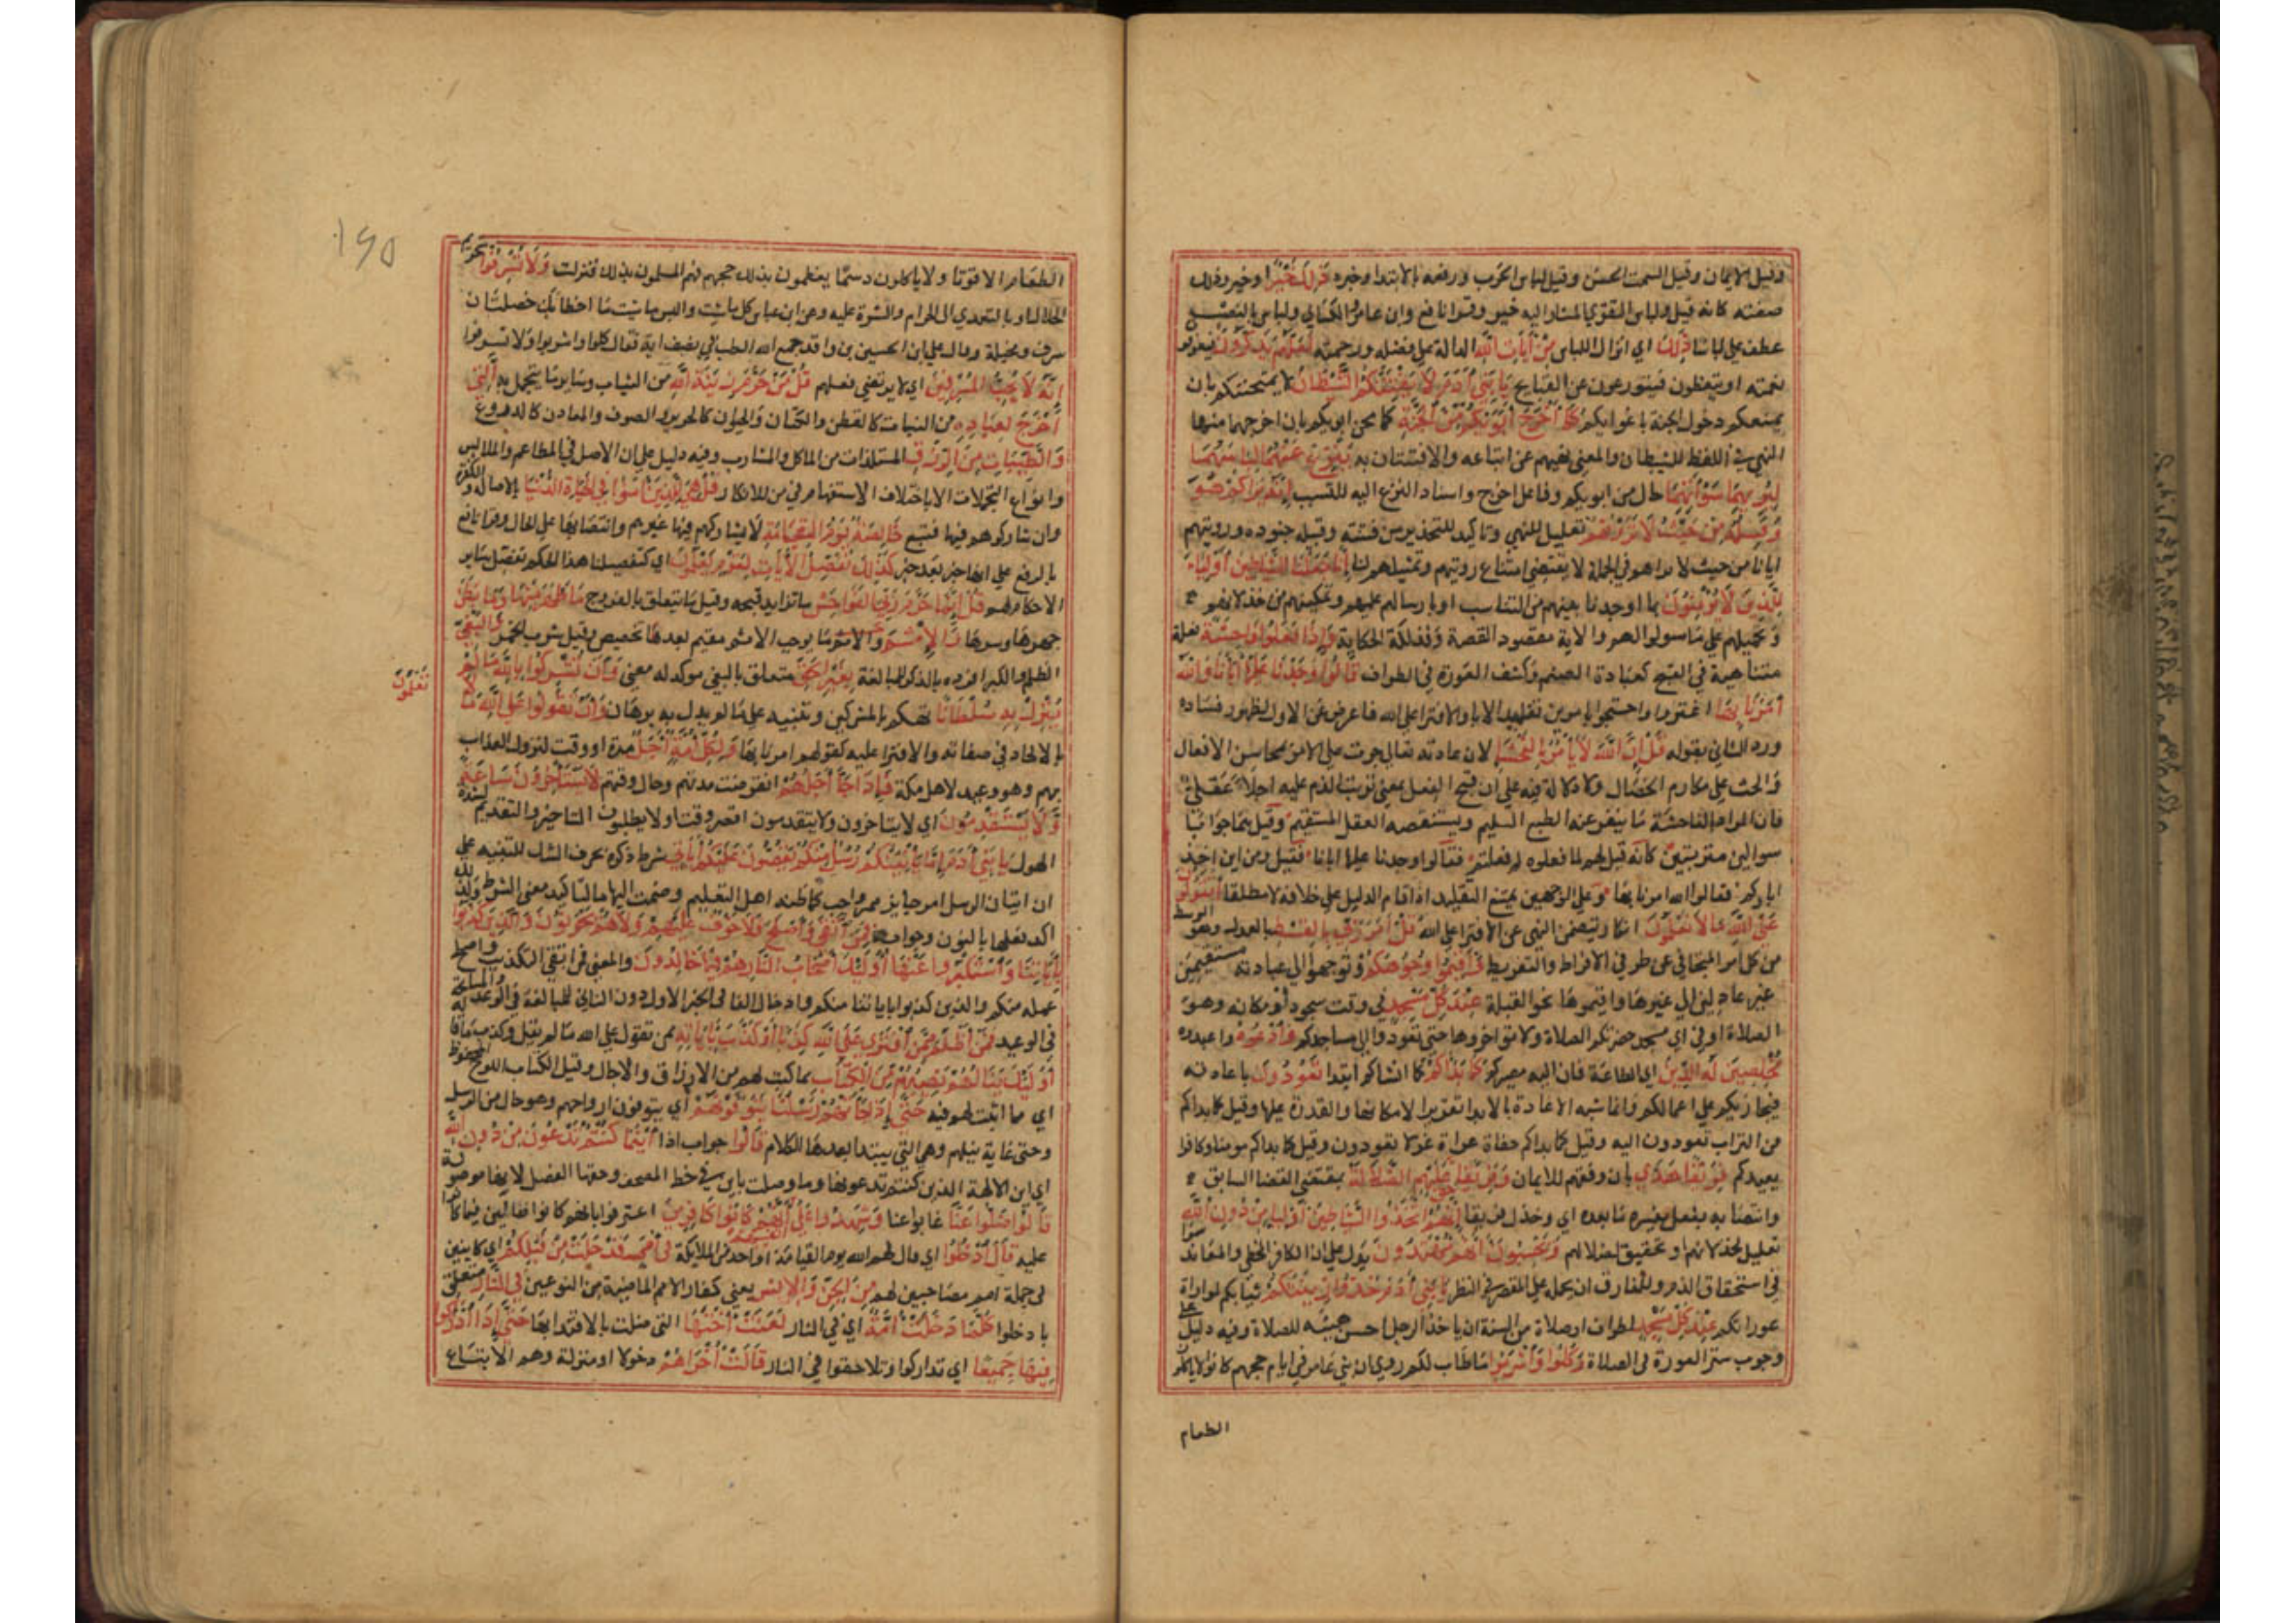 وقيل الايمان وقيل السمت الحسن وقيل لباس الحرب ورفعه بالابتدا وخبره ذَلِكَ خَيْرٌ او خبر وذلك
صفته كانه قيل ولباس التقوي المشار اليه خير وقرا نافع وابن عامر والكسائي ولباس بالنصب
عطفا علي لباسا ذَلِكَ اي انزال اللباس مِنْ آيَاتِ اللَّهِ الدالة علي فضله ورحمته لَعَلَّهُمْ يَذَّكَّرُونَ فيعرفو
نعمته او يتعظون فيتورعون عن القبايح يَا بَنِي آدَمَ لَا يَفْتِنَنَّكُمُ الشَّيْطَانُ لا يمتحنكم بان
يمنعكم دخول الجنة باغوايكم كَمَا أَخْرَجَ أَبَوَيْكُمْ مِنَ الْجَنَّةِ كما محن ابويكم بان اخرجهما منها
النهي في اللفظ للشيطان والمعني نهيهم عن اتباعه والافتتان به يَنْزِعُ عَنْهُمَا لِبَاسَهُمَا
لِيُرِيَهُمَا سَوْآتِهِمَا حال من ابويكم او فاعل اخرج واسناد النزع اليه للتسبب إِنَّهُ يَرَاكُمْ هُوَ
وَقَبِيلُهُ مِنْ حَيْثُ لَا تَرَوْنَهُمْ تعليل للنهي وتاكيد للتحذير من فتنته وقبيله جنوده ورويتهم
ايانا من حيث لا نراهم في الجملة لا يقتضي امتناع رويتهم وتمثيلهم لنا إِنَّا جَعَلْنَا الشَّيَاطِينَ أَوْلِيَاءَ
لِلَّذِينَ لَا يُؤْمِنُونَ بما اوجدنا بينهم من التناسب او بارسالهم عليهم وتمكينهم من خذلانهم
وحملهم علي ما سولوا لهم والاية مقصود القصة وفذلكة الحكاية وَإِذَا فَعَلُوا فَاحِشَةً فعلة
متناهية في القبح كعبادة الصنم وكشف العورة في الطواف قَالُوا وَجَدْنَا عَلَيْهَا آبَاءَنَا وَاللَّهُ
أَمَرَنَا بِهَا اعتذروا واحتجوا بامرين تقليد الابا والافترا علي الله فاعرض عن الاول لظهور فساده
ورد الثاني بقوله قُلْ إِنَّ اللَّهَ لَا يَأْمُرُ بِالْفَحْشَاءِ لان عادته تعالي جرت علي الامر بمحاسن الافعال
والحث علي مكارم الخصال ولا دلالة فيه علي ان قبح الفعل بمعني ترتب الذم عليه اجلا عقلي
فان المراد بالفاحشة ما ينفر عنه الطبع السليم ويستنقصه العقل المستقيم وقيل هما جوابا
سوالين مترتبين كانه قيل لهم لما فعلوه لم فعلتم فقالوا وجدنا عليها ابانا فقيل ومن اين اخذ
اباوكم فقالوا الله امرنا بها وعلي الوجهين يمتنع التقليد اذا قام الدليل علي خلافه لا مطلقا أَتَقُولُونَ
عَلَى اللَّهِ مَا لَا تَعْلَمُونَ انكار يتضمن النهي عن الافترا علي الله قُلْ أَمَرَ رَبِّي بِالْقِسْطِ بالعدل وهو الوسط
من كل امر المتجافي عن طرفي الافراط والتفريط وَأَقِيمُوا وُجُوهَكُمْ وتوجهوا الي عبادته مستقيمين
غير عادلين الي غيرها واقيموها نحو القبلة عِنْدَ كُلِّ مَسْجِدٍ في وقت سجود او مكانه وهو
الصلاة او في اي مسجد حضرتكم الصلاة ولا توخروها حتي تعودوا الي مساجدكم وَادْعُوهُ واعبدوه
مُخْلِصِينَ لَهُ الدِّينَ اي الطاعة فان اليه مصيركم كَمَا بَدَأَكُمْ كما انشاكم ابتدا تَعُودُونَ باعادته
فيجازيكم علي اعمالكم وانما شبه الاعادة بالابدا تقريرا لامكانها والقدرة عليها وقيل كما بداكم
من التراب تعودون اليه وقيل كما بداكم حفاة عراة غرلا تعودون وقيل كما بداكم مومنا وكافرا
يعيدكم فَرِيقًا هَدَى بان وفقهم للايمان وَفَرِيقًا حَقَّ عَلَيْهِمُ الضَّلَالَةُ بمقتضي القضا السابق
وانتصابه بفعل يفسره ما بعده اي وخذل فريقا إِنَّهُمُ اتَّخَذُوا الشَّيَاطِينَ أَوْلِيَاءَ مِنْ دُونِ اللَّهِ
تعليل لخذلانهم او تحقيق لضلالهم وَيَحْسَبُونَ أَنَّهُمْ مُهْتَدُونَ يدل علي ان الكافر المخطي والمعاند سوا
في استحقاق الذم وللفارق ان يحمله علي المقصر في النظر يَا بَنِي آدَمَ خُذُوا زِينَتَكُمْ ثيابكم لمواراة
عوراتكم عِنْدَ كُلِّ مَسْجِدٍ لطواف او صلاة من السنة ان ياخذ الرجل احسن هيئته للصلاة وفيه دليل علي
وجوب ستر العورة في الصلاة وَكُلُوا وَاشْرَبُوا ما طاب لكم روي ان بني عامر في ايام حجهم كانوا لا ياكلون
الطعام
١٩٥
الطعام الا قوتا ولا ياكلون دسما يعظمون بذلك حجهم فهم المسلمون بذلك فنزلت وَلَا تُسْرِفُوا بتحريم
الحلال او بالتعدي الي الحرام والشره عليه وعن ابن عباس كل ما شيت والبس ما شيت ما اخطاتك خصلتان
سرف ومخيلة وقال علي ابن الحسين بن واقد جمع الله الطب في نصف اية فقال كلوا واشربوا ولا تسرفوا
إِنَّهُ لَا يُحِبُّ الْمُسْرِفِينَ اي لا يرتضي فعلهم قُلْ مَنْ حَرَّمَ زِينَةَ اللَّهِ من الثياب وساير ما يتجمل به الَّتِي
أَخْرَجَ لِعِبَادِهِ من النبات كالقطن والكتان والحيوان كالحرير والصوف والمعادن كالدروع
وَالطَّيِّبَاتِ مِنَ الرِّزْقِ المستلذات من الماكل والمشارب وفيه دليل علي ان الاصل في المطاعم والملابس
وانواع التجملات الاباحة لان الاستفهام في من للانكار قُلْ هِيَ لِلَّذِينَ آمَنُوا فِي الْحَيَاةِ الدُّنْيَا بالاصالة والكفرة
وان شاركوهم فيها فتبع خَالِصَةً يَوْمَ الْقِيَامَةِ لا يشاركهم فيها غيرهم وانتصابها علي الحال وقرا نافع
بالرفع علي انها خبر بعد خبر كَذَلِكَ نُفَصِّلُ الْآيَاتِ لِقَوْمٍ يَعْلَمُونَ اي كتفصيلنا هذا الحكم نفصل ساير
الاحكام لهم قُلْ إِنَّمَا حَرَّمَ رَبِّيَ الْفَوَاحِشَ ما تزايد قبحه وقيل ما يتعلق بالفروج مَا ظَهَرَ مِنْهَا وَمَا بَطَنَ
جهرها وسرها وَالْإِثْمَ والاثم ما يوجب الاثم تعميم بعد تخصيص وقيل شرب الخمر وَالْبَغْيَ
الظلم او الكبر افرده بالذكر للمبالغة بِغَيْرِ الْحَقِّ متعلق بالبغي موكد له معني وَأَنْ تُشْرِكُوا بِاللَّهِ مَا لَمْ
يُنَزِّلْ بِهِ سُلْطَانًا تهكم بالمشركين وتنبيه علي ما لم يدل به برهان وَأَنْ تَقُولُوا عَلَى اللَّهِ مَا لَا
تَعْلَمُونَ
بالالحاد في صفاته والافترا عليه كقولهم امرنا بها وَلِكُلِّ أُمَّةٍ أَجَلٌ مدة او وقت لنزول العذاب
بهم وهو وعيد لاهل مكة فَإِذَا جَاءَ أَجَلُهُمْ انقرضت مدتهم وحان وقتهم لَا يَسْتَأْخِرُونَ سَاعَةً
وَلَا يَسْتَقْدِمُونَ اي لا يتاخرون ولا يتقدمون اقصر وقت او لا يطلبون التاخير والتقديم لشدة
الهول يَا بَنِي آدَمَ إِمَّا يَأْتِيَنَّكُمْ رُسُلٌ مِنْكُمْ يَقُصُّونَ عَلَيْكُمْ آيَاتِي شرط ذكره بحرف الشك للتنبيه علي
ان اتيان الرسل امر جايز غير واجب كما ظنه اهل التعليم وضمت اليها ما لتاكيد معني الشرط ولذلك
اكد فعلها بالنون وجوابه فَمَنِ اتَّقَى وَأَصْلَحَ فَلَا خَوْفٌ عَلَيْهِمْ وَلَا هُمْ يَحْزَنُونَ وَالَّذِينَ كَذَّبُوا
بِآيَاتِنَا وَاسْتَكْبَرُوا عَنْهَا أُولَئِكَ أَصْحَابُ النَّارِ هُمْ فِيهَا خَالِدُونَ والمعني فمن اتقي التكذيب واصلح
عمله منكم والذين كذبوا باياتنا منكم وادخال الفا في الخبر الاول دون الثاني للمبالغة في الوعد والمسامحة
في الوعيد فَمَنْ أَظْلَمُ مِمَّنِ افْتَرَى عَلَى اللَّهِ كَذِبًا أَوْ كَذَّبَ بِآيَاتِهِ ممن تقول علي الله ما لم يقله وكذب ما قاله
أُولَئِكَ يَنَالُهُمْ نَصِيبُهُمْ مِنَ الْكِتَابِ مما كتب لهم من الارزاق والاجال وقيل الكتاب اللوح المحفوظ
اي مما اثبت لهم فيه حَتَّى إِذَا جَاءَتْهُمْ رُسُلُنَا يَتَوَفَّوْنَهُمْ اي يتوفون ارواحهم وهو حال من الرسل
وحتي غاية نيلهم وهي التي يبتدا بعدها الكلام قَالُوا جواب اذا أَيْنَمَا كُنْتُمْ تَدْعُونَ مِنْ دُونِ اللَّهِ
اي اين الالهة الذين كنتم تدعونها وما وصلت باين في خط المصحف وحقها الفصل لانها موصولة
قَالُوا ضَلُّوا عَنَّا غابوا عنا وَشَهِدُوا عَلَى أَنْفُسِهِمْ أَنَّهُمْ كَانُوا كَافِرِينَ اعترفوا بانهم كانوا ضالين فيما كانوا
عليه قَالَ ادْخُلُوا اي قال لهم الله يوم القيامة او احد من الملايكة فِي أُمَمٍ قَدْ خَلَتْ مِنْ قَبْلِكُمْ اي كاينين
في جملة امم مصاحبين لهم مِنَ الْجِنِّ وَالْإِنْسِ يعني كفار الامم الماضية من النوعين فِي النَّارِ متعلق
بادخلوا كُلَّمَا دَخَلَتْ أُمَّةٌ اي في النار لَعَنَتْ أُخْتَهَا التي ضلت بالاقتدا بها حَتَّى إِذَا ادَّارَكُوا
فِيهَا جَمِيعًا اي تداركوا وتلاحقوا في النار قَالَتْ أُخْرَاهُمْ دخولا او منزلة وهم الاتباع